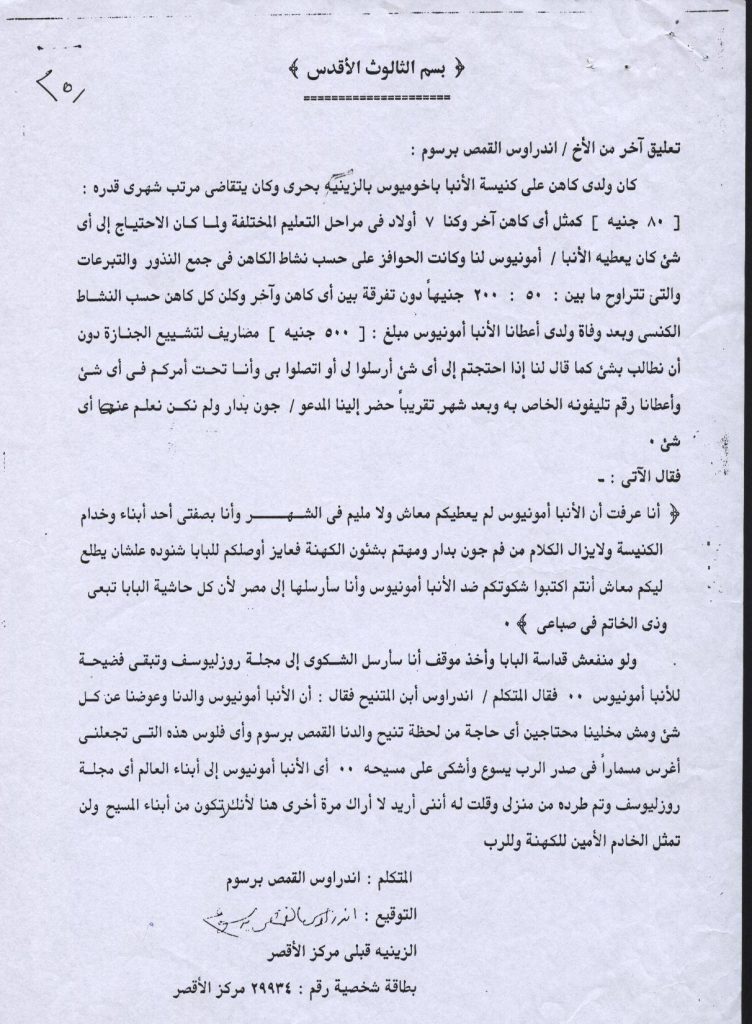 ﴿ بسم الثالوث الأقدس ﴾
====================
تعليق آخر من الأخ / اندراوس القمص برسوم :
كان ولدى كاهن على كنيسة الأنبا باخوميوس بالزينيه بحرى وكان يتقاضى مرتب شهرى قدره :
[ ٨٠ جنيه ] كمثل أى كاهن آخر وكنا ٧ أولاد فى مراحل التعليم المختلفة ولما كان الاحتياج إلى أى
شئ كان يعطيه الأنبا / أمونيوس لنا وكانت الحوافز على حسب نشاط الكاهن فى جمع النذور والتبرعات
والتى تتراوح ما بين : ٥٠ : ٢٠٠ جنيهاً دون تفرقة بين أى كاهن وآخر وكلن كل كاهن حسب النشاط
الكنسى وبعد وفاة ولدى أعطانا الأنبا أمونيوس مبلغ : [ ٥٠٠ جنيه ] مضاريف لتشييع الجنازة دون
أن نطالب بشئ كما قال لنا إذا احتجتم إلى أى شئ أرسلوا لى أو اتصلوا بى وأنا تحت أمركم فى أى شئ
وأعطانا رقم تليفونه الخاص به وبعد شهر تقريباً حضر إلينا المدعو / جون بدار ولم نكن نعلم عنه أى
شئ .
فقال الآتى : -
﴿ أنا عرفت أن الأنبا أمونيوس لم يعطيكم معاش ولا مليم فى الشهر وأنا بصفتى أحد أبناء وخدام
الكنيسة ولايزال الكلام من فم جون بدار ومهتم بشئون الكهنة فعايز أوصلكم للبابا شنوده علشان يطلع
ليكم معاش أنتم اكتبوا شكوتكم ضد الأنبا أمونيوس وأنا سأرسلها إلى مصر لأن كل حاشية البابا تبعى
وذى الخاتم فى صباعى ﴾ .
ولو منفعش قداسة البابا وأخذ موقف أنا سأرسل الشكوى إلى مجلة روزليوسف وتبقى فضيحة
للأنبا أمونيوس .. فقال المتكلم / اندراوس أبن المتنيح فقال : أن الأنبا أمونيوس والدنا وعوضنا عن كل
شئ ومش مخلينا محتاجين أى حاجة من لحظة تنيح والدنا القمص برسوم وأى فلوس هذه التى تجعلنى
أغرس مسماراً فى صدر الرب يسوع وأشكى على مسيحه .. أى الأنبا أمونيوس إلى أبناء العالم أى مجلة
روزليوسف وتم طرده من منزلى وقلت له أننى أريد لا أراك مرة أخرى هنا لأنك تكون من أبناء المسيح ولن
تمثل الخادم الأمين للكهنة وللرب
المتكلم : اندراوس القمص برسوم
التوقيع : اندراوس القمص برسوم
الزينيه قبلى مركز الأقصر
بطاقة شخصية رقم : ٢٩٩٣٤ مركز الأقصر